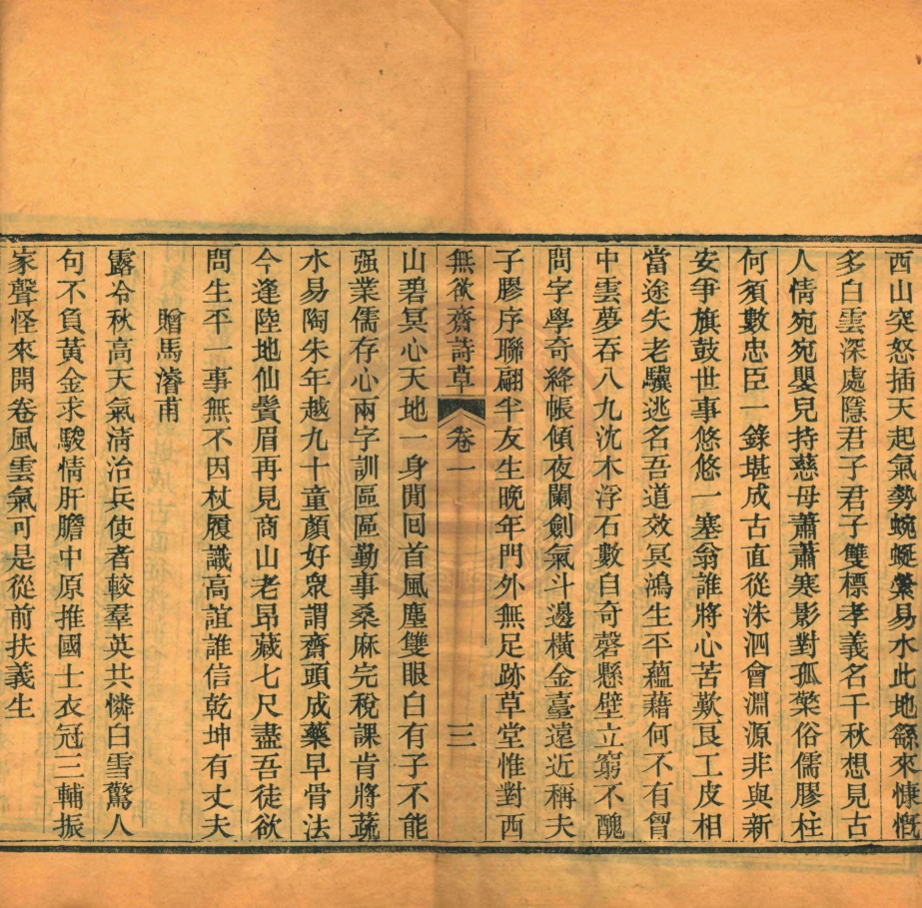 西山突怒插天起氣勢蜿蜒縈易水此地繇來慷慨
多白雲深處隱君子君子雙標孝義名千秋想見古
人情宛宛嬰兒持慈母蕭蕭寒影對孤檠俗儒膠柱
何須數忠臣一錄堪成古直從洙泗會淵源非與新
安爭旗鼓世事悠悠一塞翁誰將心苦歎良工皮相
當途失老驥逃名吾道效冥鴻生平蘊藉何不有曾
中雲夢吞八九沈木浮石數自奇磬懸壁立窮不醜
問字學奇絳帳傾夜闌劍氣斗邊橫金臺遠近稱夫
子膠序聯翩半友生晚年門外無足跡草堂惟對西
無欲齋詩草 卷一 三
山碧冥心天地一身閒回首風塵雙眼白有子不能
强業儒存心兩字訓區區勤事桑麻完稅課肯將蔬
水易陶朱年越九十童顏好眾謂齋頭成藥早骨法
今逢陸地仙鬢眉再見商山老昂藏七尺盡吾徒欲
問生平一事無不因杖履識高誼誰信乾坤有丈夫
贈馬濬甫
露冷秋高天氣淸治兵使者較羣英共憐白雪驚人
句不負黃金求駿情肝膽中原推國士衣冠三輔振
家聲怪來開卷風雲氣可是從前扶義生